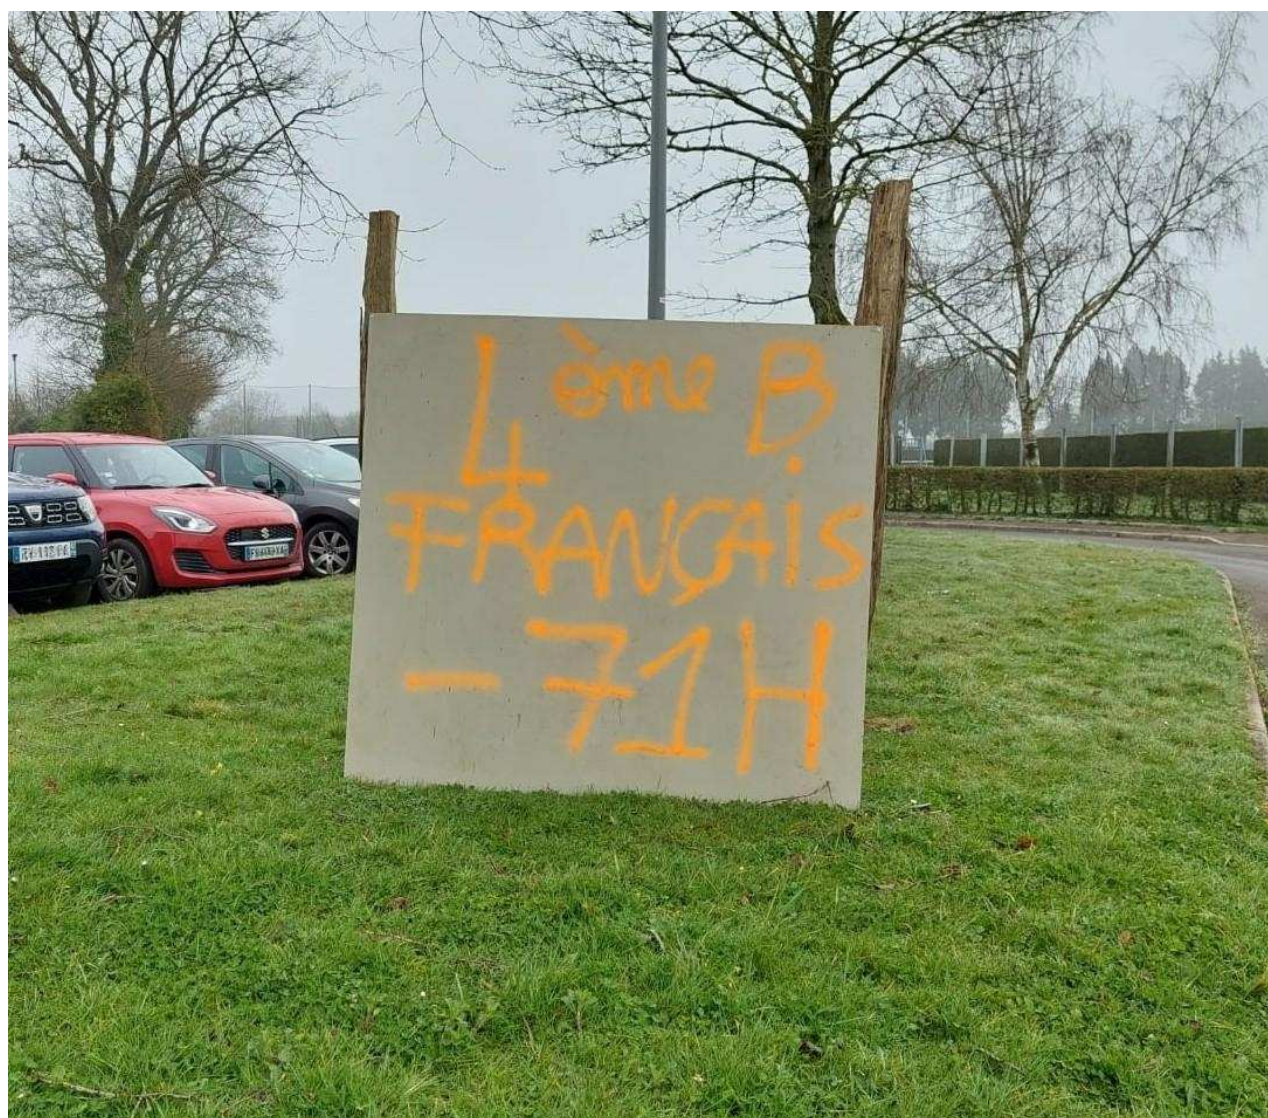 4ème B
FRANÇAİS
- 71H